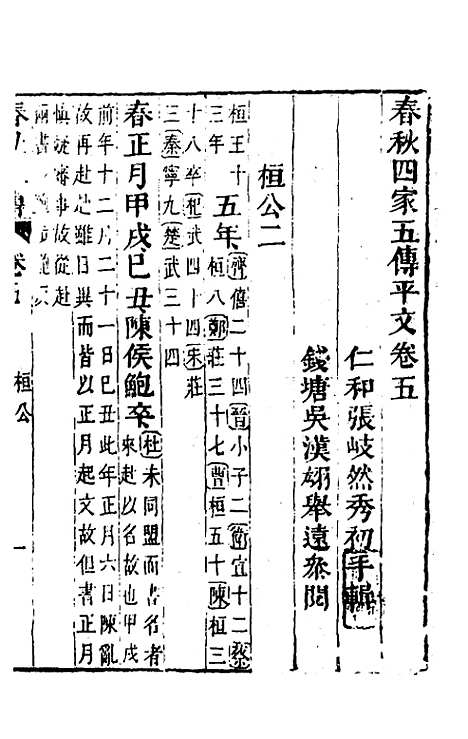 春秋四家五傳平文卷五
仁和張岐然秀初手輯
錢塘吳漢翊舉遠叅閱
桓公二
桓王十三年
五年
齊僖二十四晉小子二衛宣十二蔡
桓八鄭莊三十七曹桓五十陳桓三
十八卒杞武四十四宋莊
三秦寧九楚武三十四
春正月甲戌己丑陳侯鮑卒
杜未同盟而書名者
來赴以名故也甲戌
前年十二月二十一日己丑此年正月六日陳亂
故再赴赴雖日異而皆以正月起文故但書正月
慎疑審事故從赴
兩書
卷五
桓公
一